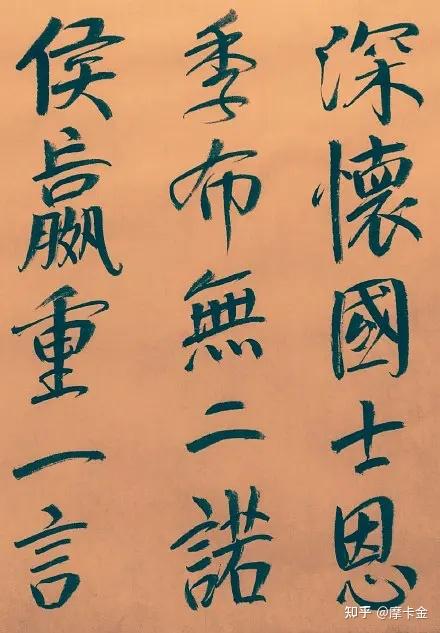 深懷國士恩
季布無二諾
侯嬴重一言
知乎 @摩卡金